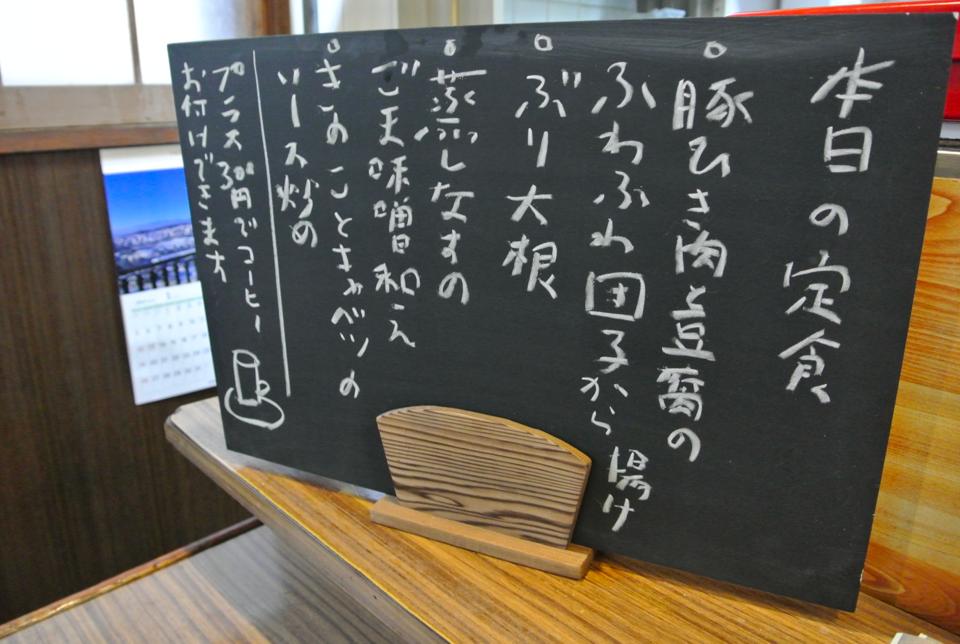 本日の定食
○豚ひき肉と豆腐の
ふわふわ団子から揚け
○ぶり大根
○蒸しなすの
ごま味噌和え
○きのことキャベツの
ソース炒め
プラス300円でコーヒー
お付けできます